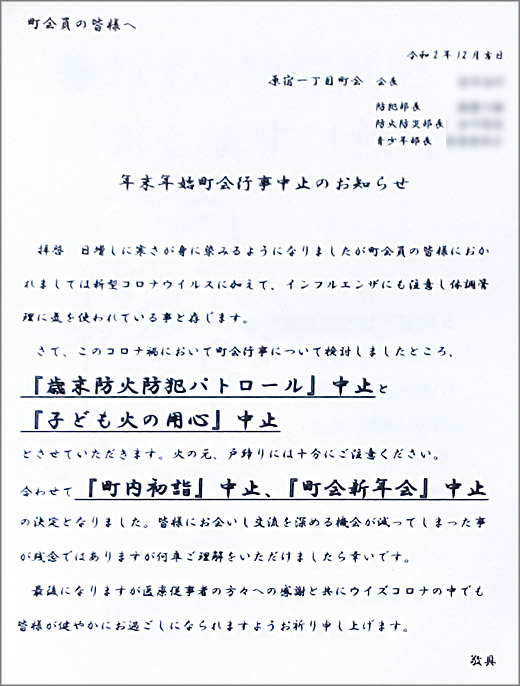 町会員の皆様へ
令和2年12月吉日
原宿一丁目町会 会長
防犯部長
防火防災部長
青少年部長
年末年始町会行事中止のお知らせ
拝啓 日増しに寒さが身に染みるようになりましたが町会員の皆様におか
れましては新型コロナウイルスに加えて、インフルエンザにも注意し体調管
理に気を使われている事と存じます。
さて、このコロナ禍において町会行事について検討しましたところ、
『歳末防火防犯パトロール』中止と
『子ども火の用心』中止
とさせていただきます。火の元、戸締りには十分にご注意ください。
合わせて『町内初詣』中止、『町会新年会』中止
の決定となりました。皆様にお会いし交流を深める機会が減ってしまった事
が残念ではありますが何卒ご理解をいただけましたら幸いです。
最後になりますが医療従事者の方々への感謝と共にウイズコロナの中でも
皆様が健やかにお過ごしになられますようお祈り申し上げます。
敬具